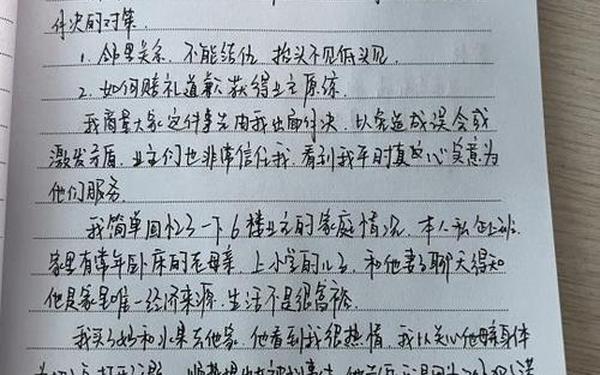 解决的对策。
1. 邻里关系、不能结仇、抬头不见低头见。
2. 如何赔礼道歉获得业主原谅。
我商量大家定件事先由我出面解决、以免造成误会或
激发矛盾、业主们也非常信任我、看到我平时真心实意为
他们服务。
我简单回忆了一下6楼业主的家庭情况、本人私企上班、
家里有常年卧床的老母亲、上小学的儿子、和他妻子聊天得知
他是家里唯一经济来源、生活不是很富裕。
我买了奶和水果去他家、他看到我很热情、我以关心他母亲身体